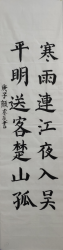 寒雨連江夜入吴
平明送客楚山孤
庚子